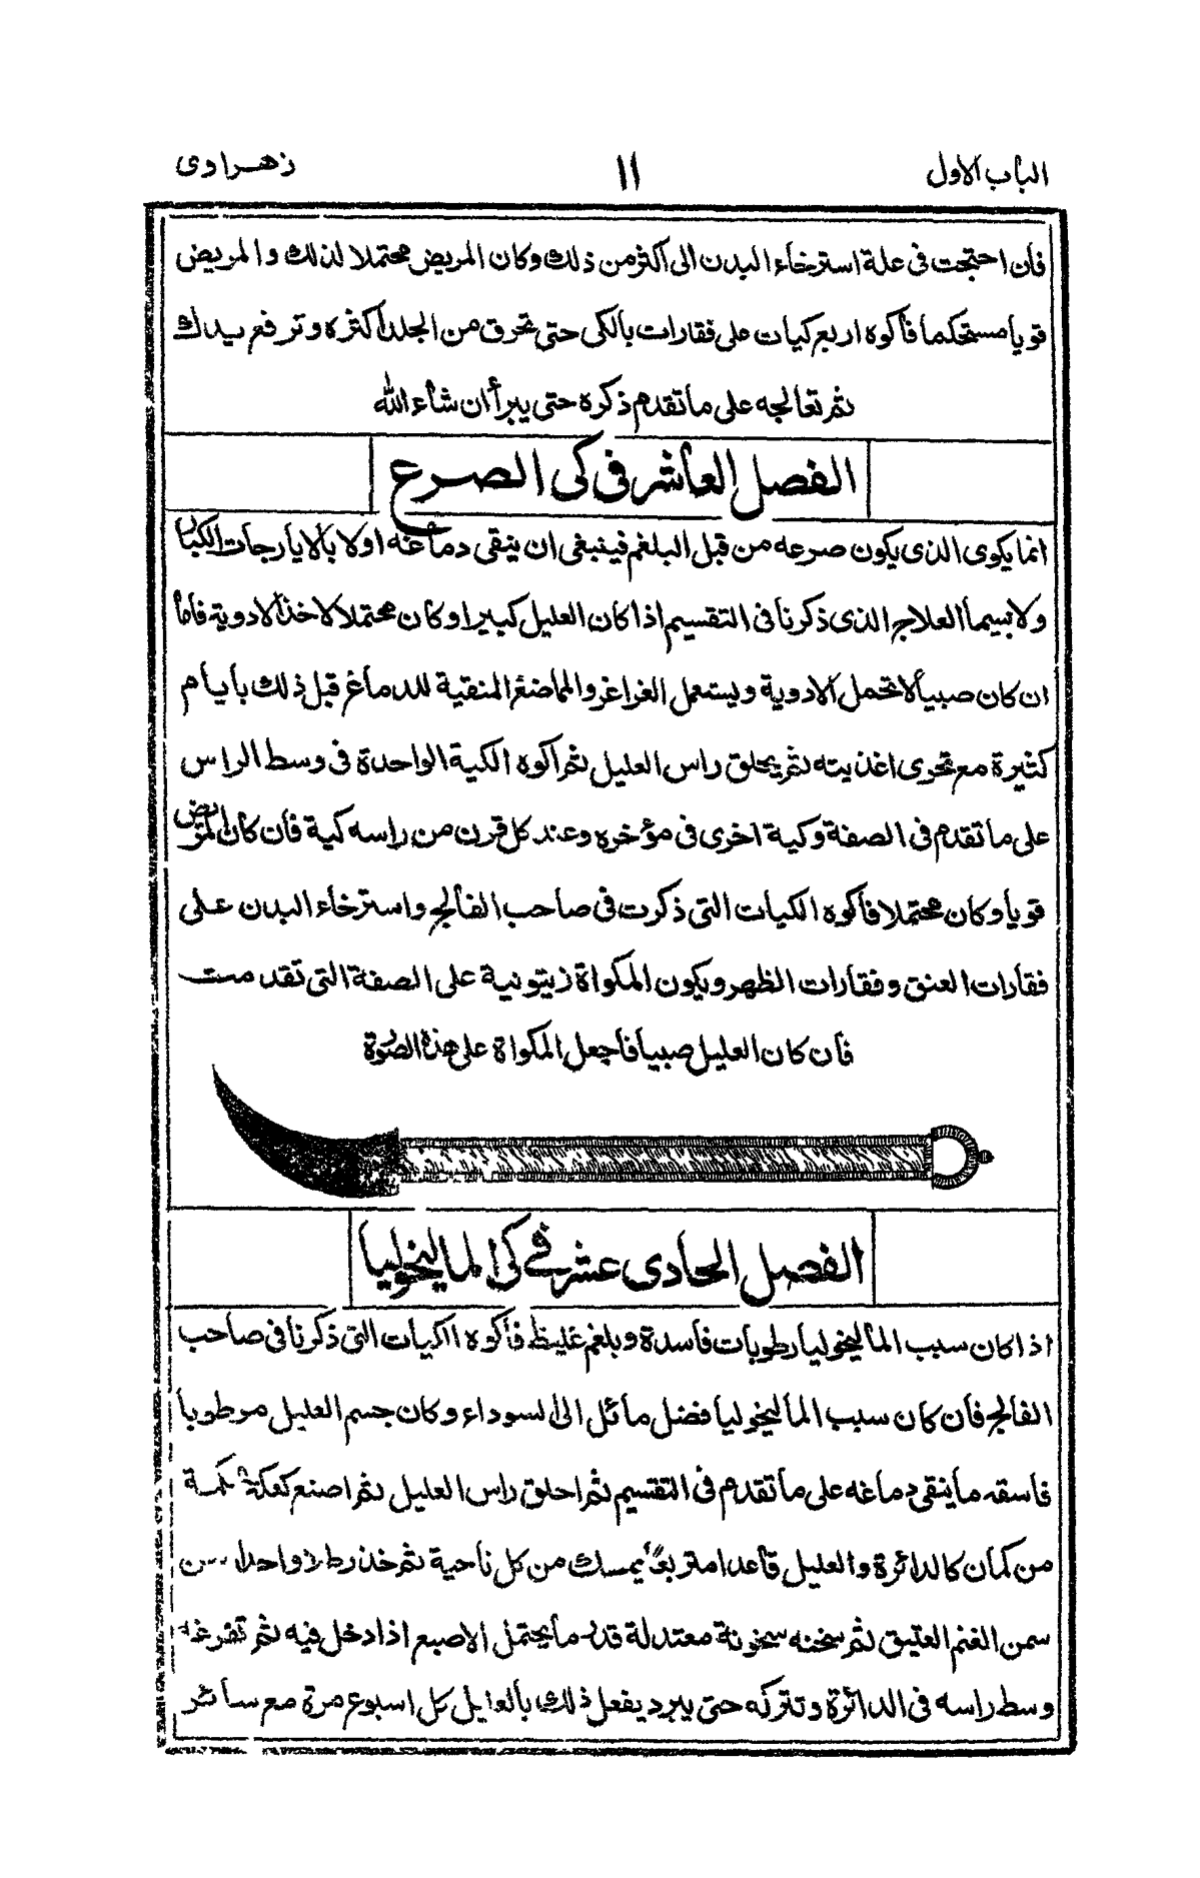 الباب الاول ١١ زهراوى
فان احتجت فى علة استرخاء البدن الى اكثر من ذلك وكان المريض محتملا لذلك والمريض
قويا مستحكما فاكوه اربع كيات على فقارات بالكى حتى تحرق من الجلد اكثره وترفع يدك
ثم تعالجه على ما تقدم ذكره حتى يبرأ ان شاء الله
الفصل العاشر فى كى الصرع
انما يكوى الذى يكون صرعه من قبل البلغم فينبغى ان ينقى دماغه اولا بالايارجات الكبار
ولاسيما العلاج الذى ذكرنا فى التقسيم اذا كان العليل كبيرا وكان محتملا لاخذ الادوية فاما
ان كان صبيا لا تحمل الادوية ويستعمل الغراغر والمماضغ المنقية للدماغ قبل ذلك بايام
كثيرة مع تحرى اغذيته ثم يحلق راس العليل ثم اكوه الكية الواحدة فى وسط الراس
على ما تقدم فى الصفة وكية اخرى فى مؤخره وعند كل قرن من راسه كية فان كان المريض
قويا وكان محتملا فاكوه الكيات التى ذكرت فى صاحب الفالج واسترخاء البدن على
فقارات العنق وفقارات الظهر ويكون المكواة زيتونية على الصفة التى تقدمت
فان كان العليل صبيا فاجعل المكواة على هذه الصورة
الفصل الحادى عشر فى كى الماليخوليا
اذا كان سبب الماليخوليا رطوبات فاسدة وبلغم غليظ فاكوه الكيات التى ذكرنا فى صاحب
الفالج فان كان سبب الماليخوليا فضل مائل الى السوداء وكان جسم العليل مرطوبا
فاسقه ما ينقى دماغه على ما تقدم فى التقسيم ثم احلق راس العليل ثم اصنع كعكة
من كتان كالدائرة والعليل قاعدا متربعا يمسك من كل ناحية ثم خذ رطلا واحدا من
سمن الغنم العتيق ثم سخنه سخونة معتدلة قدر ما يحتمل الاصبع اذا دخل فيه ثم تفرغه
وسط راسه فى الدائرة وتتركه حتى يبرد يفعل ذلك بالعليل كل اسبوع مرة مع سائر